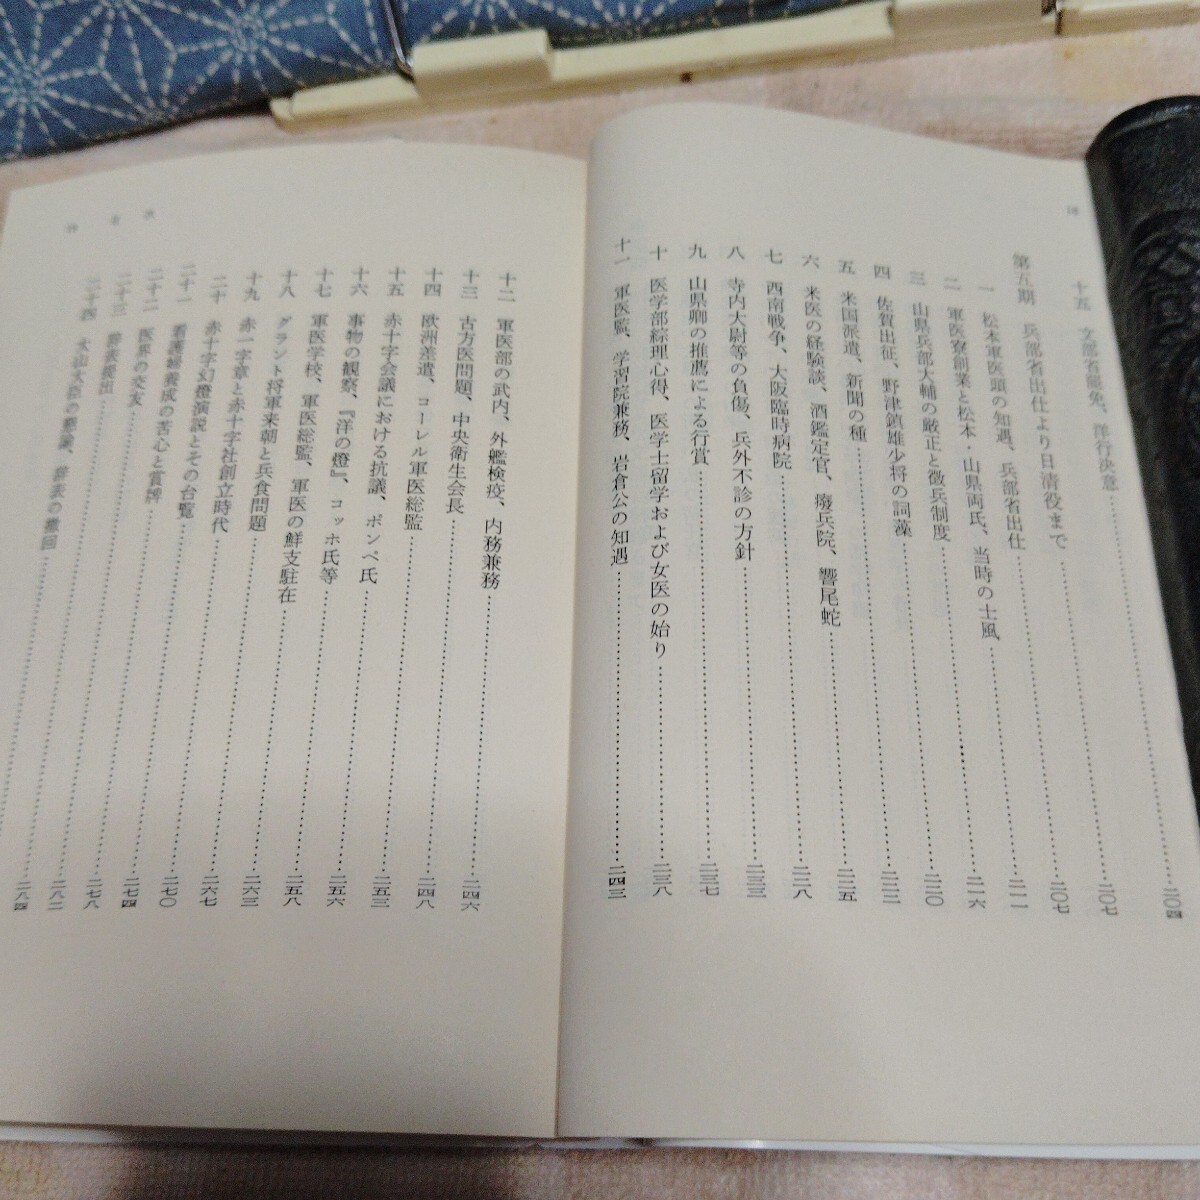 十五　文部省罷免、洋行決意……二〇四
第五期　兵部省出仕より日清役まで……二〇七
一　松本軍医頭の知遇、兵部省出仕……二〇七
二　軍医寮創業と松本・山県両氏、当時の士風……二一一
三　山県兵部大輔の厳正と徴兵制度……二一六
四　佐賀出征、野津鎮雄少将の詞藻……二二〇
五　米国派遣、新聞の種……二二二
六　米医の経験談、酒鑑定官、癈兵院、響尾蛇……二二五
七　西南戦争、大阪臨時病院……二二八
八　寺内大尉等の負傷、兵外不診の方針……二三三
九　山県卿の推薦による行賞……二三七
十　医学部綜理心得、医学士留学および女医の始り……二三八
十一　軍医監、学習院兼務、岩倉公の知遇……二四三
目次
十二　軍医部の武内、外艦検疫、内務兼務……二四六
十三　古方医問題、中央衛生会長……二四八
十四　欧洲差遣、コーレル軍医総監……二五三
十五　赤十字会議における抗議、ポンペ氏……二五六
十六　事物の観察、『洋の燈』、コッホ氏等……二五八
十七　軍医学校、軍医総監、軍医の鮮支駐在……二六三
十八　グラント将軍来朝と兵食問題……二六七
十九　赤一字章と赤十字社創立時代……二七〇
二十　赤十字幻燈演説とその台覧……二七四
二十一　看護婦養成の苦心と賞牌……二七八
二十二　医界の交友……二八二
二十三　辞表提出……二八四
二十四　大山大臣の懇諭、辞表の撤回